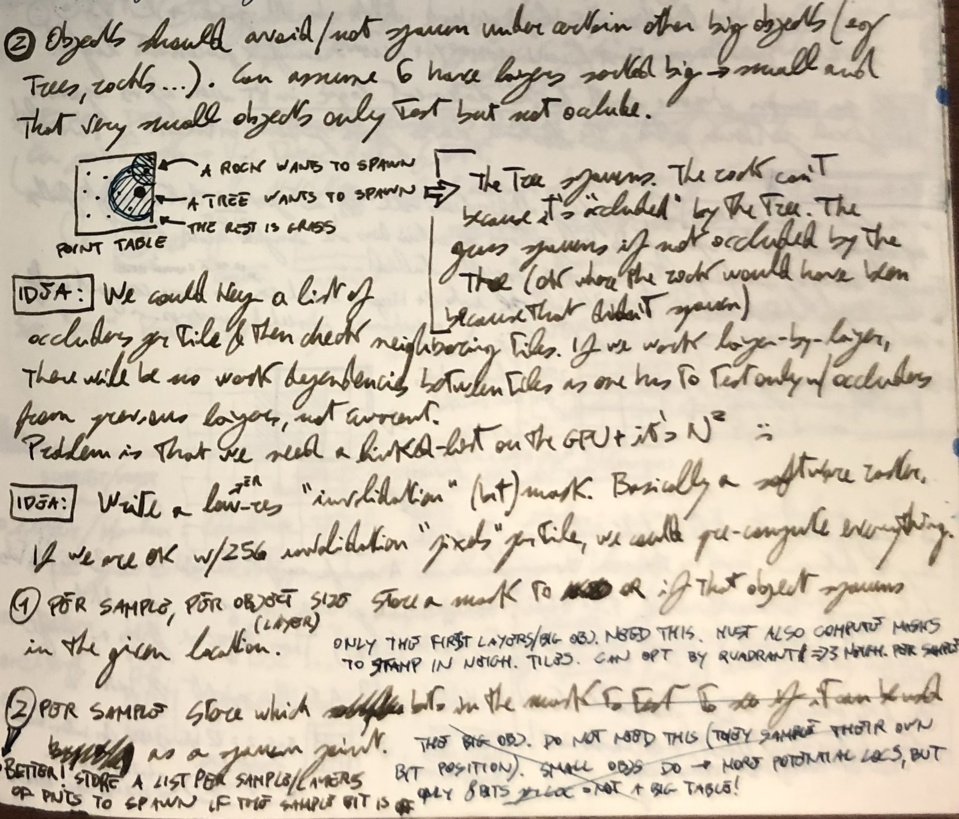 ② Objects should avoid/not spawn under certain other big objects (eg
Trees, rocks...). Can assume 6 have layers sorted big → small and
that very small objects only test but not occlude.
A ROCK WANTS TO SPAWN
A TREE WANTS TO SPAWN
THE REST IS GRASS
POINT TABLE
The Tree spawns. The rock can't
because it's "occluded" by the Tree. The
grass spawns if not occluded by the
Tree (or where the rock would have been
because that didn't spawn)
IDEA: We could keep a list of
occluders per tile & then check neighboring tiles. If we work layer-by-layer,
there will be no work dependencies between tiles as one has to test only w/occluders
from previous layers, not current.
Problem is that we need a linked-list on the GPU + it's N²
IDEA: Write a low-res "invalidation" (bit) mask. Basically a software raster.
ER
If we are OK w/256 invalidation "pixels" per tile, we could pre-compute everything.
① PER SAMPLE, PER OBJECT SIZE store a mask to OR if that object spawns
(LAYER)
in the given location.
ONLY THE FIRST LAYERS/BIG OBJ. NEED THIS. MUST ALSO COMPUTE MASKS
TO STAMP IN NEIGH. TILES. CAN OPT BY QUADRANT => 3 NEIGH. PER SAMPLE
② PER SAMPLE store which bits in the mask to test to see if it can be used
as a spawn point.
THE BIG OBJ. DO NOT NEED THIS (THEY SAMPLE THEIR OWN
BIT POSITION). SMALL OBJS DO → MORE POTENTIAL LOCS, BUT
ONLY 8 BITS NOT A BIG TABLE!
BETTER! STORE A LIST PER SAMPLE/LAYERS
OF PNTS TO SPAWN IF THE SAMPLE BIT IS